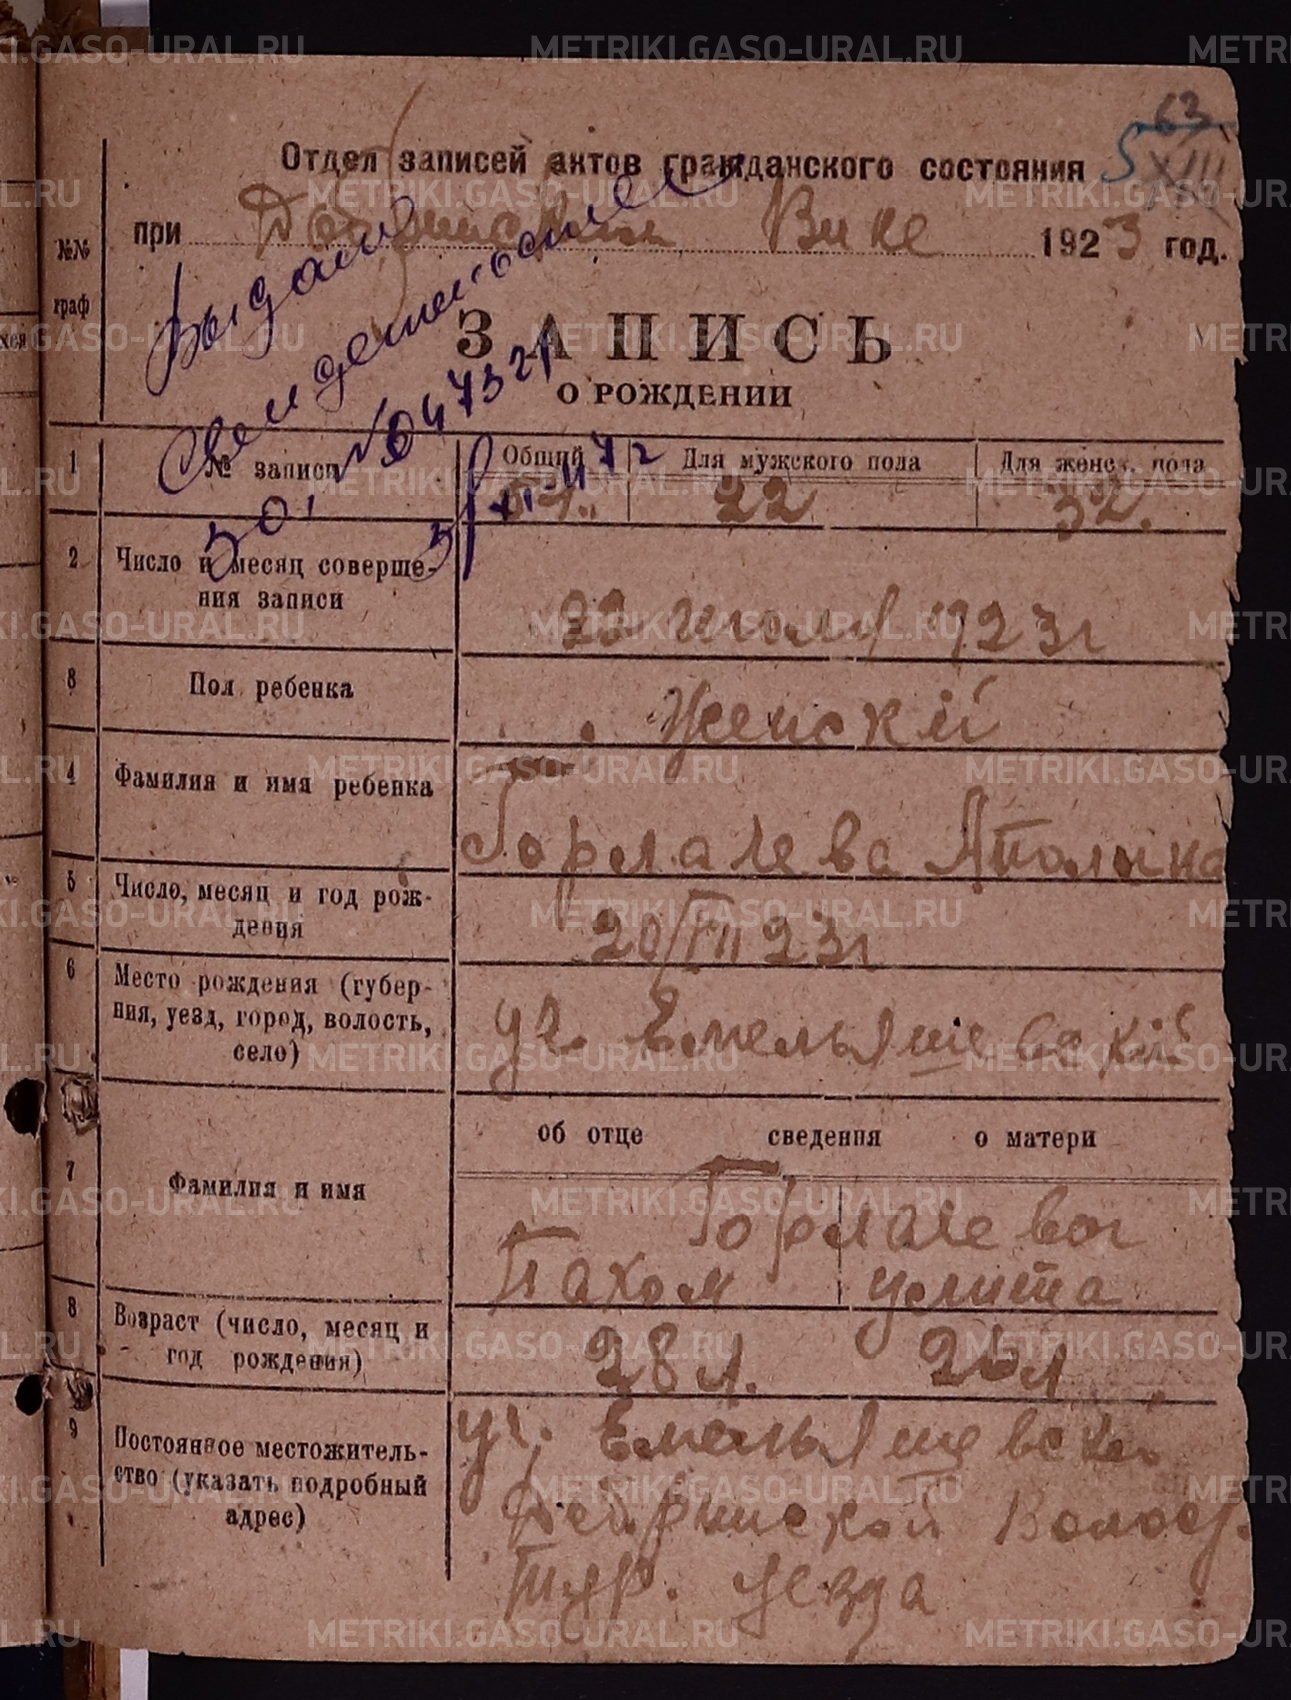 63
5 XIII
Отдел записей актов гражданского состояния
при Вике 1923 год.
№№ граф
Выдано
свидетельство
ЗАПИСЬ
О РОЖДЕНИИ
1 № записи Общий Для мужского пола Для женск. пола
54. 22 32.
2 Число и месяц соверше-
ния записи
22 Июля 1923 г
3 Пол ребенка Женскій
4 Фамилия и имя ребенка
Горлалева Аполина
5 Число, месяц и год рож-
дения
20/VII 23 г
6 Место рождения (губер-
ния, уезд, город, волость,
село)
уч. Емельяшевскій
об отце сведения о матери
7 Фамилия и имя
Горлалевы
Пахом Улита
8 Возраст (число, месяц и
год рождения)
28 л. 26 л
9 Постоянное местожитель-
ство (указать подробный
адрес)
уч. Емельяшевскій
Волост.
Тур. уезда
METRIKI.GASO-URAL.RU